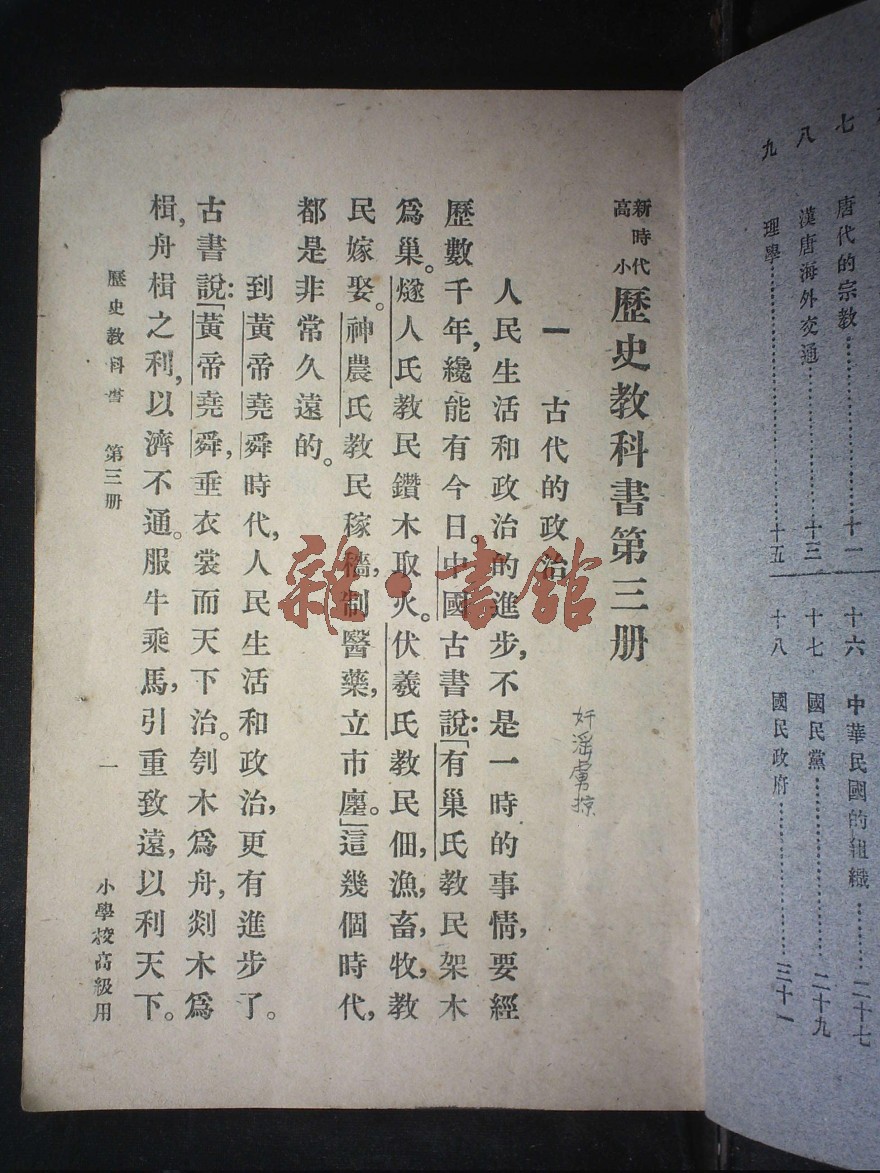 七　唐代的宗教……十一
八　漢唐海外交通……十三
九　理學……十五
十六　中華民國的組織……二十七
十七　國民黨……二十九
十八　國民政府……三十一
新時代
高小
歷史教科書第三册
一　古代的政治
人民生活和政治的進步，不是一時的事情，要經
歷數千年，纔能有今日。中國古書說：「有巢氏教民架木
爲巢。燧人氏教民鑽木取火。伏羲氏教民佃，漁，畜，牧，教
民嫁娶。神農氏教民稼穡，制醫藥，立市廛。」這幾個時代，
都是非常久遠的。
到黃帝堯舜時代，人民生活和政治，更有進步了。
古書說：「黃帝堯舜，垂衣裳而天下治。刳木爲舟，剡木爲
楫，舟楫之利，以濟不通。服牛乘馬，引重致遠，以利天下。
歷史教科書　第三册
一
小學校高級用
奸淫虜掠
雜·書館